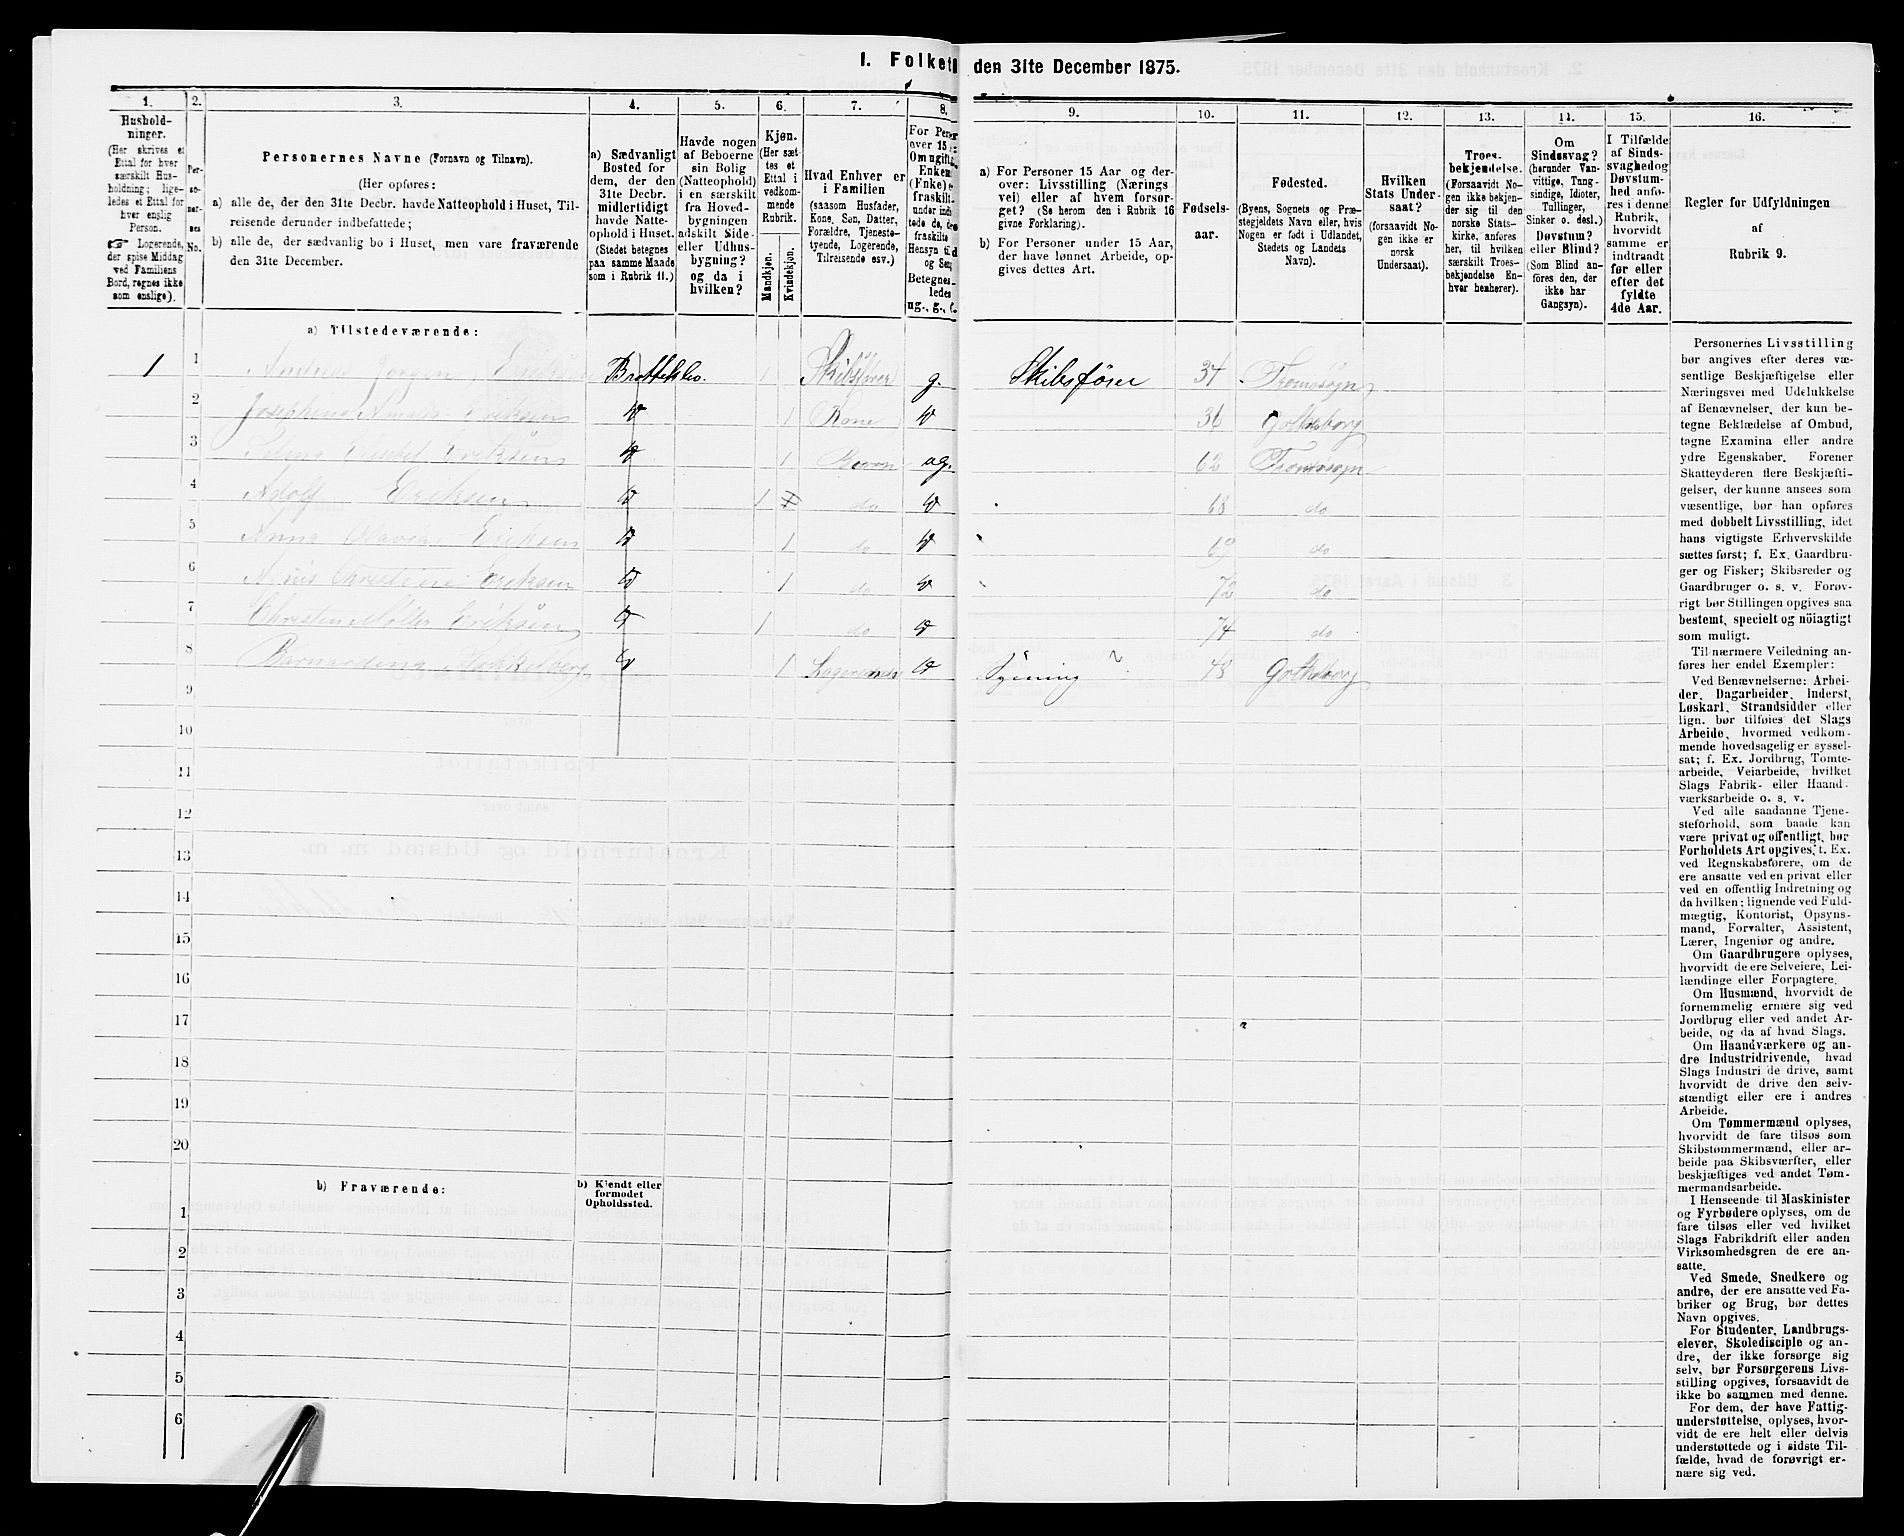 1. Folket
den 31te December 1875.
1. 2. 3. 4. 5. 6. 7. 8. 9. 10. 11. 12. 13. 14. 15. 16.
Hushold-
ninger.
(Her skrives et
Ettal for hver
særskilt Hus-
holdning; lige-
ledes et Ettal for
hver enslig
Person.
Logerende,
der spise Middag
ved Familiens
Bord, regnes ikke
som enslige).
Per-
so-
ner-
nes
No.
Personernes Navne (Fornavn og Tilnavn).
(Her opføres:
a) alle de, der den 31te Decbr. havde Natteophold i Huset, Til-
reisende derunder indbefattede;
b) alle de, der sædvanlig bo i Huset, men vare fraværende
den 31te December.
a) Sædvanligt
Bosted for
dem, der den
31te Decbr.
midlertidigt
havde Natte-
ophold i Huset.
(Stedet betegnes
paa samme Maade
som i Rubrik 11.)
Havde nogen
af Beboerne
sin Bolig
(Natteophold)
i en særskilt
fra Hoved-
bygningen
adskilt Side-
eller Udhus-
bygning?
og da i
hvilken?
Kjøn.
(Her sæt-
tes et
Ettal i
vedkom-
mende
Rubrik.
Mandkjøn.
Kvindekjøn.
Hvad Enhver er
i Familien
(saasom Husfader,
Kone, Søn, Datter,
Forældre, Tjeneste-
tyende, Logerende,
Tilreisende osv.)
For Perso
over 15
Om ugift
Enkem
(Enke) e
fraskilt
Betegnes
ledes
ug., g.,
a) For Personer 15 Aar og der-
over: Livsstilling (Nærings-
vei) eller af hvem forsør-
get? (Se herom den i Rubrik 16
givne Forklaring).
b) For Personer under 15 Aar,
der have lønnet Arbeide, op-
gives dettes Art.
Fødsels-
aar.
Fødested.
(Byens, Sognets og Præ-
stegjeldets Navn eller, hvis
Nogen er født i Udlandet,
Stedets og Landets
Navn).
Hvilken
Stats Under-
saat?
(forsaavidt No-
gen ikke er
norsk
Undersaat).
Troes-
bekjendelse.
(Forsaavidt No-
gen ikke bekjen-
der sig til den
norske Stats-
kirke, anføres
her, til hvilken
særskilt Troes-
bekjendelse En-
hver henhører).
Om
Sindssvag?
(herunder Van-
vittige, Tung-
sindige, Idioter,
Tullinger,
Sinker o. desl.)
Døvstum?
eller Blind?
(Som Blind an-
føres den, der
ikke har
Gangsyn).
I Tilfælde
af Sinds-
svaghed og
Døvstum-
hed anfø-
res i denne
Rubrik,
hvorvidt
samme er
indtraadt
før eller
efter det
fyldte
4de Aar.
Regler for Udfyldningen
af
Rubrik 9.
a) Tilstedeværende:
1 1 Jørgen Eriksen 1 Skibsfører g. Skibsfører 34 Tromøsogn
2 Josephine Amalia Eriksen 1 Kone 36 Gotheborg
3 Eriksen 1 62 Tromøsogn
4 Adolf Eriksen 1 do 68 do
5 Anna Olavia Eriksen 1 do 69 do
6 Christine Eriksen 1 do 72 do
7 Christen Møller Eriksen 1 do 74 do
8 1 Logerende Syening ? 48 Gothеborg
9
10
11
12
13
15
16
17
18
19
20
b) Fraværende:
b) Kjendt eller
formodet
Opholdssted.
1
2
3
4
5
6
Personernes Livsstilling
bør angives efter deres væ-
sentlige Beskjæftigelse eller
Næringsvei med Udelukkelse
af Benævnelser, der kun be-
tegne Beklædelse af Ombud,
tagne Examina eller andre
ydre Egenskaber. Forener
Skatteyderen flere Beskjæfti-
gelser, der kunne ansees som
væsentlige, bør han opføres
med dobbelt Livsstilling, idet
hans vigtigste Erhvervskilde
sættes først; f. Ex. Gaardbru-
ger og Fisker; Skibsreder og
Gaardbruger o. s. v. Forøv-
rigt bør Stillingen opgives saa
bestemt, specielt og nøiagtigt
som muligt.
Til nærmere Veiledning an-
føres her endel Exempler:
Ved Benævnelserne: Arbei-
der, Dagarbeider, Inderst,
Løskarl, Strandsidder eller
lign. bør tilføies det Slags
Arbeide, hvormed vedkom-
mende hovedsagelig er syssel-
sat; f. Ex. Jordbrug, Tomte-
arbeide, Veiarbeide, hvilket
Slags Fabrik- eller Haand-
værksarbeide o. s. v.
Ved alle saadanne Tjene-
steforhold, som baade kan
være privat og offentligt, bør
Forholdets Art opgives, f. Ex.
ved Regnskabsførere, om de
ere ansatte ved en privat eller
ved en offentlig Indretning og
da hvilken; lignende ved Fuld-
mægtig, Kontorist, Opsyns-
mand, Forvalter, Assistent,
Lærer, Ingeniør og andre.
Om Gaardbrugere oplyses,
hvorvidt de ere Selveiere, Lei-
lændinge eller Forpagtere.
Om Husmænd, hvorvidt de
fornemmelig ernære sig ved
Jordbrug eller ved andet Ar-
beide, og da af hvad Slags.
Om Haandværkere og an-
dre Industridrivende, hvad
Slags Industri de drive, samt
hvorvidt de drive den selv-
stændigt eller ere i andres
Arbeide.
Om Tømmermænd oplyses,
hvorvidt de fare tilsøs som
Skibstømmermænd, eller ar-
beide paa Skibsværfter, eller
beskjæftiges ved andet Tøm-
mermandsarbeide.
I Henseende til Maskinister
og Fyrbødere oplyses, om de
fare tilsøs eller ved hvilket
Slags Fabrikdrift eller anden
Virksomhedsgren de ere an-
satte.
Ved Smede, Snedkere og
andre, der ere ansatte ved Fa-
briker og Brug, bør dettes
Navn opgives.
For Studenter, Landbrugs-
elever, Skoledisciple og an-
dre, der ikke forsørge sig
selv, bør Forsørgerens Livs-
stilling opgives, forsaavidt de
ikke bo sammen med denne.
For dem, der have Fattig-
understøttelse, oplyses, hvor-
vidt de ere helt eller delvis
understøttede og i sidste Til-
fælde, hvad de forøvrigt er-
nære sig ved.